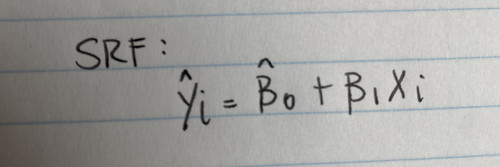 SRF:
Ŷi = β̂0 + β1 Xi